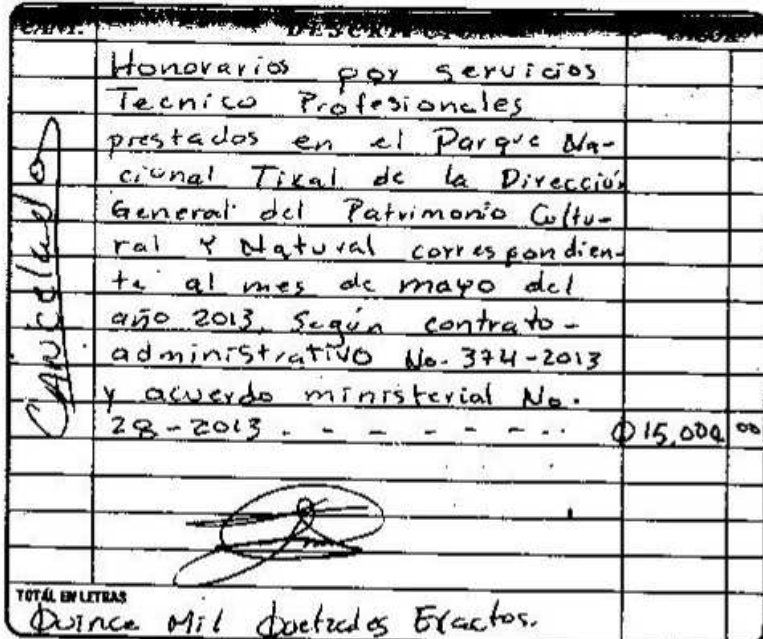 CANT. DESCRIPCION VALOR
Honorarios por servicios
Tecnico Profesionales
prestados en el Parque Na-
cional Tikal de la Dirección
General del Patrimonio Cultu-
ral Y Natural correspondien-
te al mes de mayo del
año 2013, Según contrato-
administrativo No. 374-2013
y acuerdo ministerial No.
28-2013. - - - - - - - Q15,000 00
CANCELADO
TOTAL EN LETRAS
Quince Mil Quetzales Exactos.